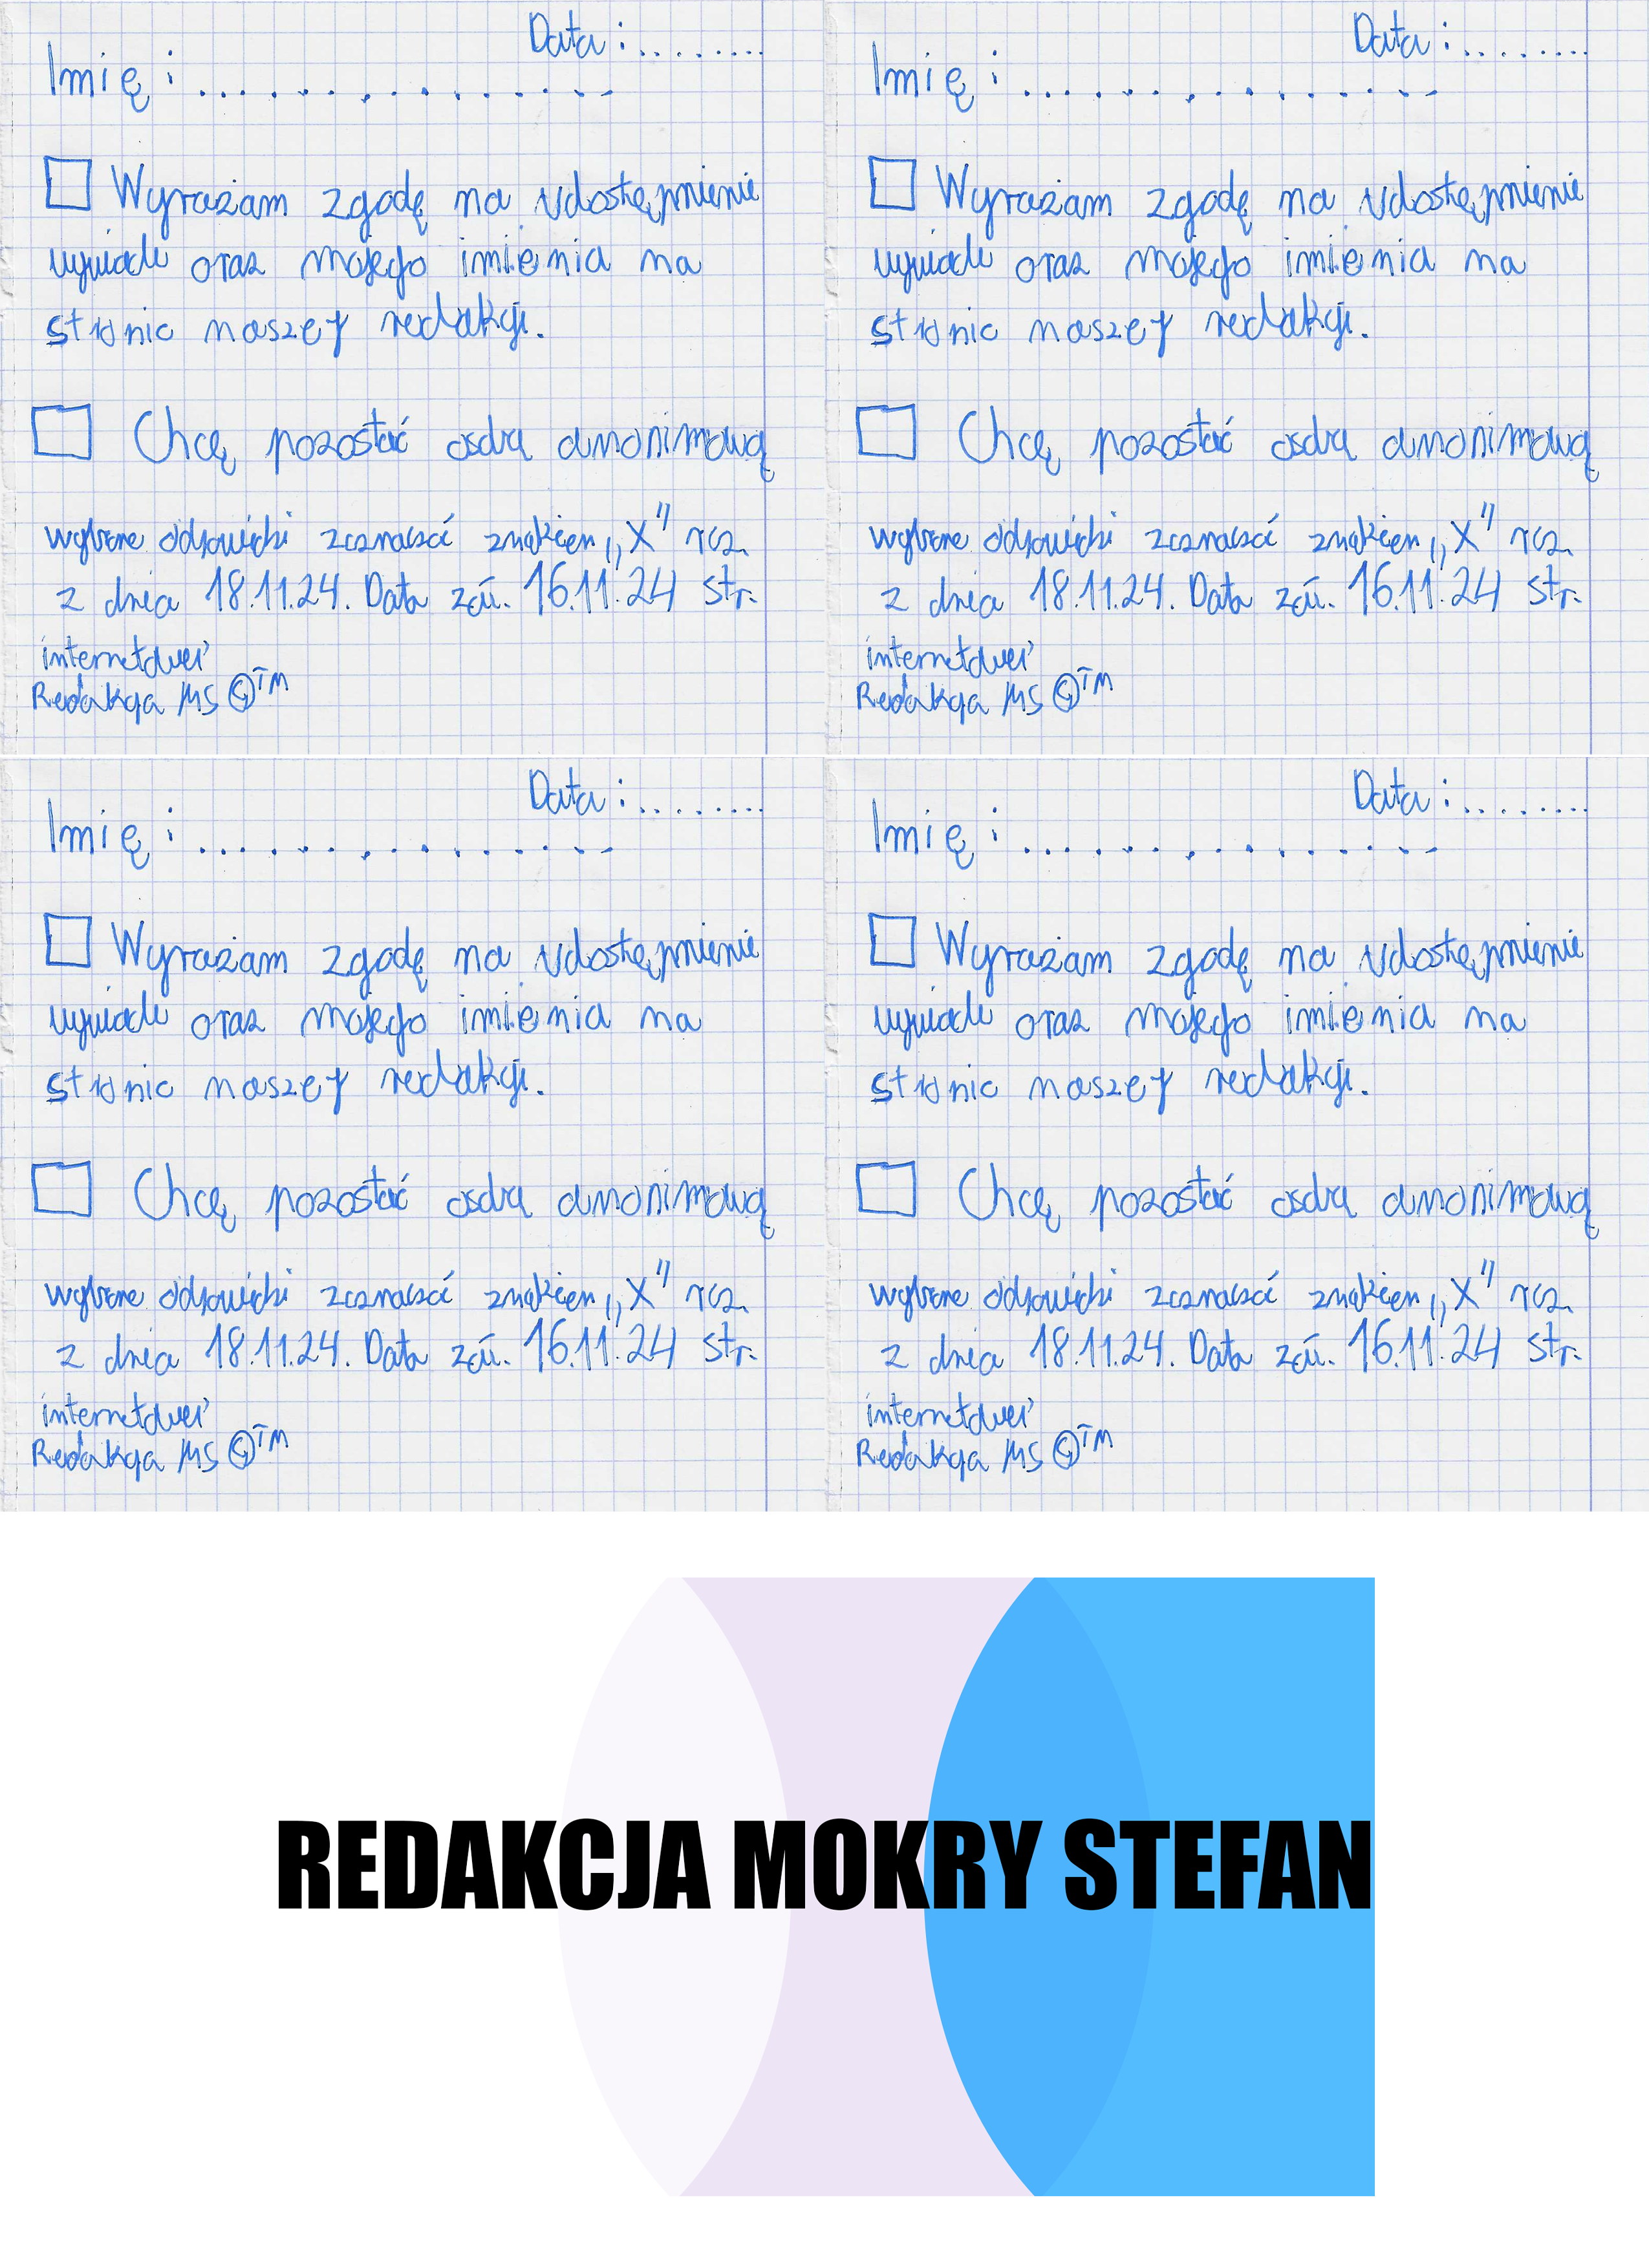 Data : ........
Imię : ...............
Wyrażam zgodę na udostępnienie
wywiadu oraz mojego imienia na
stronie naszej redakcji.
Chcę pozostać osobą anonimową
wybrane odpowiedzi zaznaczać znakiem „X”
z dnia 18.11.24. Data 16.11.24 str.
internetowej
Redakcja MS ©™
Data : ........
Imię : ...............
Wyrażam zgodę na udostępnienie
wywiadu oraz mojego imienia na
stronie naszej redakcji.
Chcę pozostać osobą anonimową
wybrane odpowiedzi zaznaczać znakiem „X”
z dnia 18.11.24. Data 16.11.24 str.
internetowej
Redakcja MS ©™
Data : ........
Imię : ...............
Wyrażam zgodę na udostępnienie
wywiadu oraz mojego imienia na
stronie naszej redakcji.
Chcę pozostać osobą anonimową
wybrane odpowiedzi zaznaczać znakiem „X”
z dnia 18.11.24. Data 16.11.24 str.
internetowej
Redakcja MS ©™
Data : ........
Imię : ...............
Wyrażam zgodę na udostępnienie
wywiadu oraz mojego imienia na
stronie naszej redakcji.
Chcę pozostać osobą anonimową
wybrane odpowiedzi zaznaczać znakiem „X”
z dnia 18.11.24. Data 16.11.24 str.
internetowej
Redakcja MS ©™
REDAKCJA MOKRY STEFAN